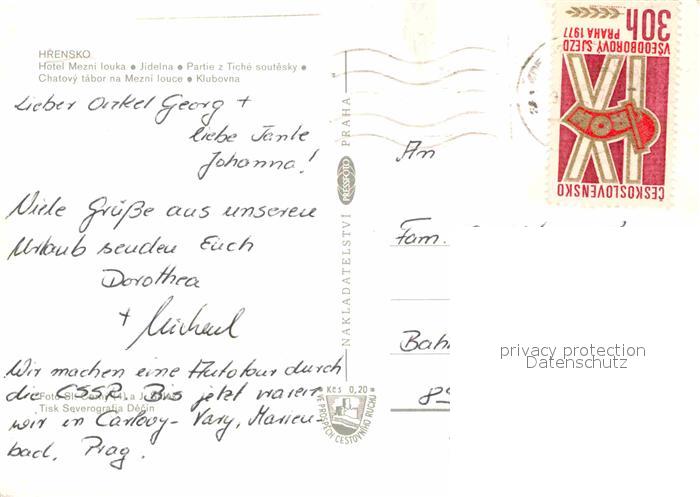 HŘENSKO
Hotel Mezní louka ● Jídelna ● Partie z Tiché soutěsky ●
Chatový tábor na Mezní louce ● Klubovna
Lieber Onkel Georg +
liebe Tante
Johanna!
Viele Grüße aus unseren
Urlaub senden Euch
Dorothea
+ Michael
Wir machen eine Autotour durch
die CSSR. Bis jetzt waren
wir in Carlovy-Vary, Marien-
bad, Prag.
Foto
Tisk Severografia Děčín
NAKLADATELSTVÍ PRESSFOTO PRAHA
Kčs 0,20
VE PROSPĚCH CESTOVNÍHO RUCHU
An
Fam.
Bah
89
privacy protection
Datenschutz
ČESKOSLOVENSKO
XI
ROH
VŠEODBOROVÝ SJEZD
PRAHA 1977
30h